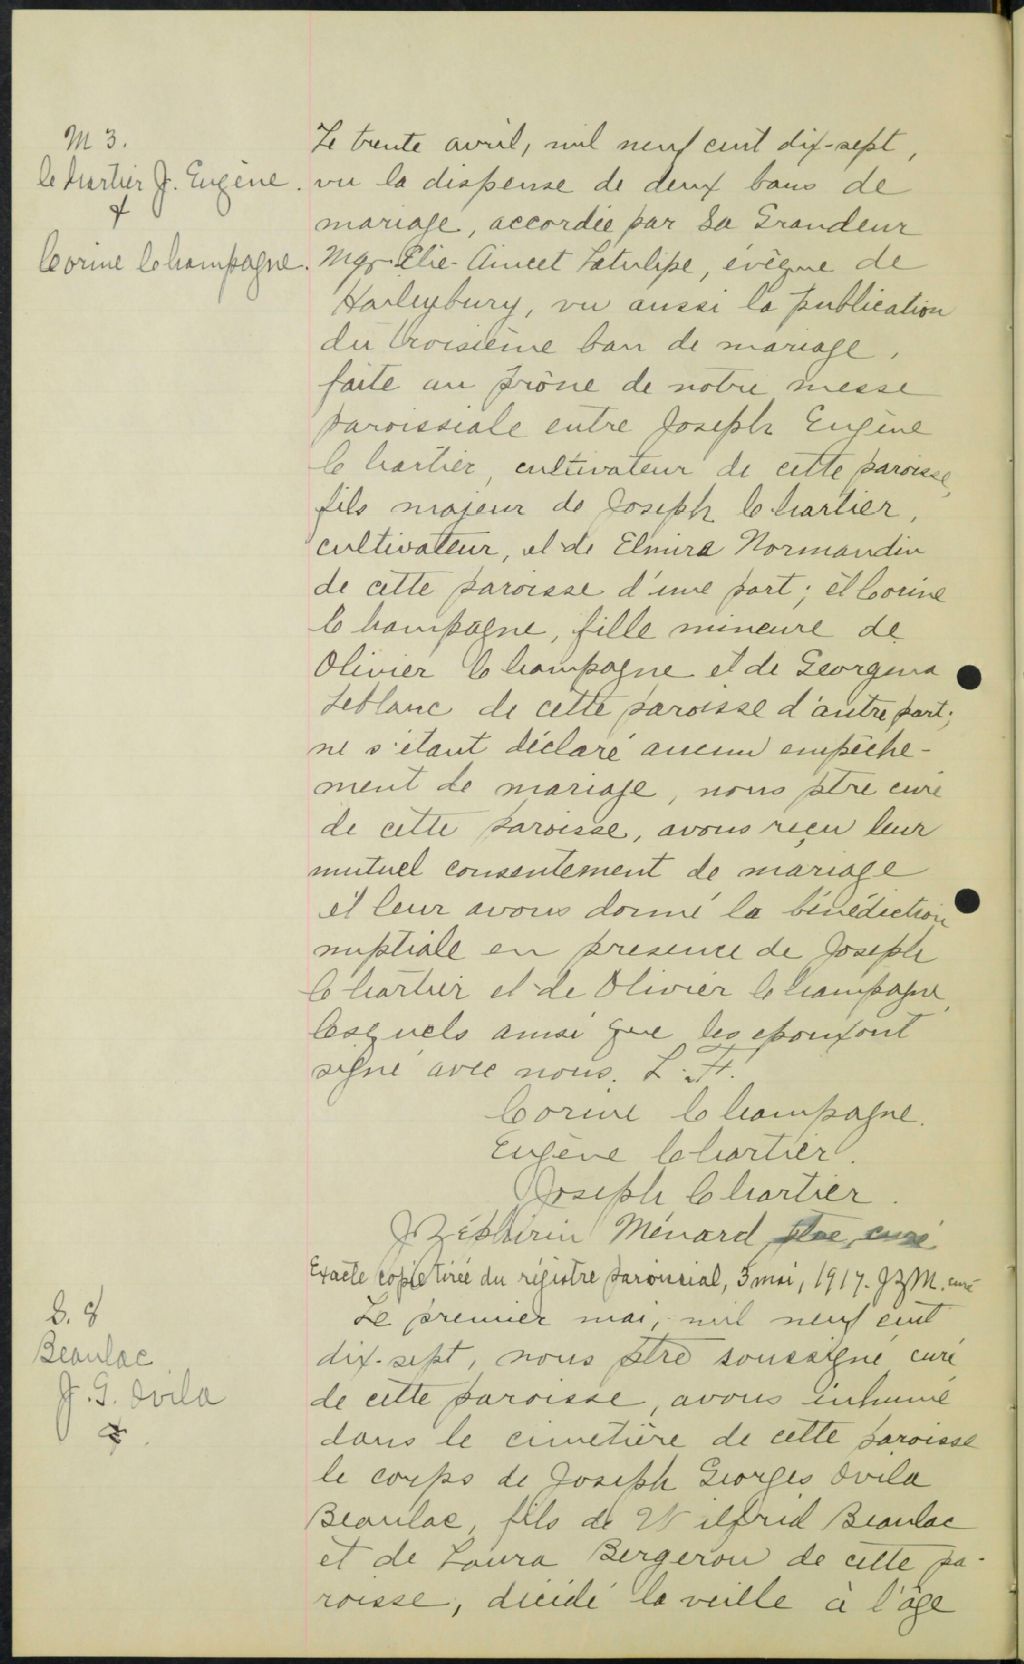 M 3.
Chartier J. Eugène.
&
Corine Champagne.
Le trente avril, mil neuf cent dix-sept,
vu la dispense de deux bans de
mariage, accordée par Sa Grandeur
Mgr Élie-Anicet Latulipe, évêque de
Haileybury, vu aussi la publication
du troisième ban de mariage,
faite au prône de notre messe
paroissiale entre Joseph Eugène
Chartier, cultivateur de cette paroisse,
fils majeur de Joseph Chartier,
cultivateur, et de Elmira Normandin
de cette paroisse d'une part; et Corine
Champagne, fille mineure de
Olivier Champagne et de Georgina
Leblanc de cette paroisse d'autre part;
ne s'étant déclaré aucun empêche-
ment de mariage, nous ptre curé
de cette paroisse, avons reçu leur
mutuel consentement de mariage
et leur avons donné la bénédiction
nuptiale en presence de Joseph
Chartier et de Olivier Champagne,
lesquels ainsi que les epoux ont
signé avec nous. L. F.
Corine Champagne.
Eugène Chartier.
Joseph Chartier.
J Zéphirin Ménard, ptre, curé
Exacte copie tirée du régistre paroissial, 3 mai, 1917. J Z M. curé
S. 8
Beaulac
J. G. Ovila
Le premier mai, mil neuf cent
dix-sept, nous ptre soussigné curé
de cette paroisse, avons inhumé
dans le cimetière de cette paroisse
le corps de Joseph Georges Ovila
Beaulac, fils de Wilfrid Beaulac
et de Laura Bergeron de cette pa-
roisse, décédé la veille à l'âge